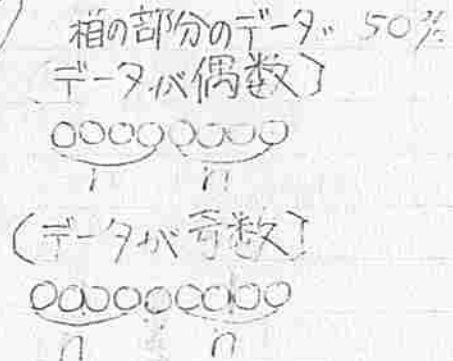 箱の部分のデータ 50%
(データが偶数)
○○○○○○○○
n n
(データが奇数)
○○○○○○○○○
n n